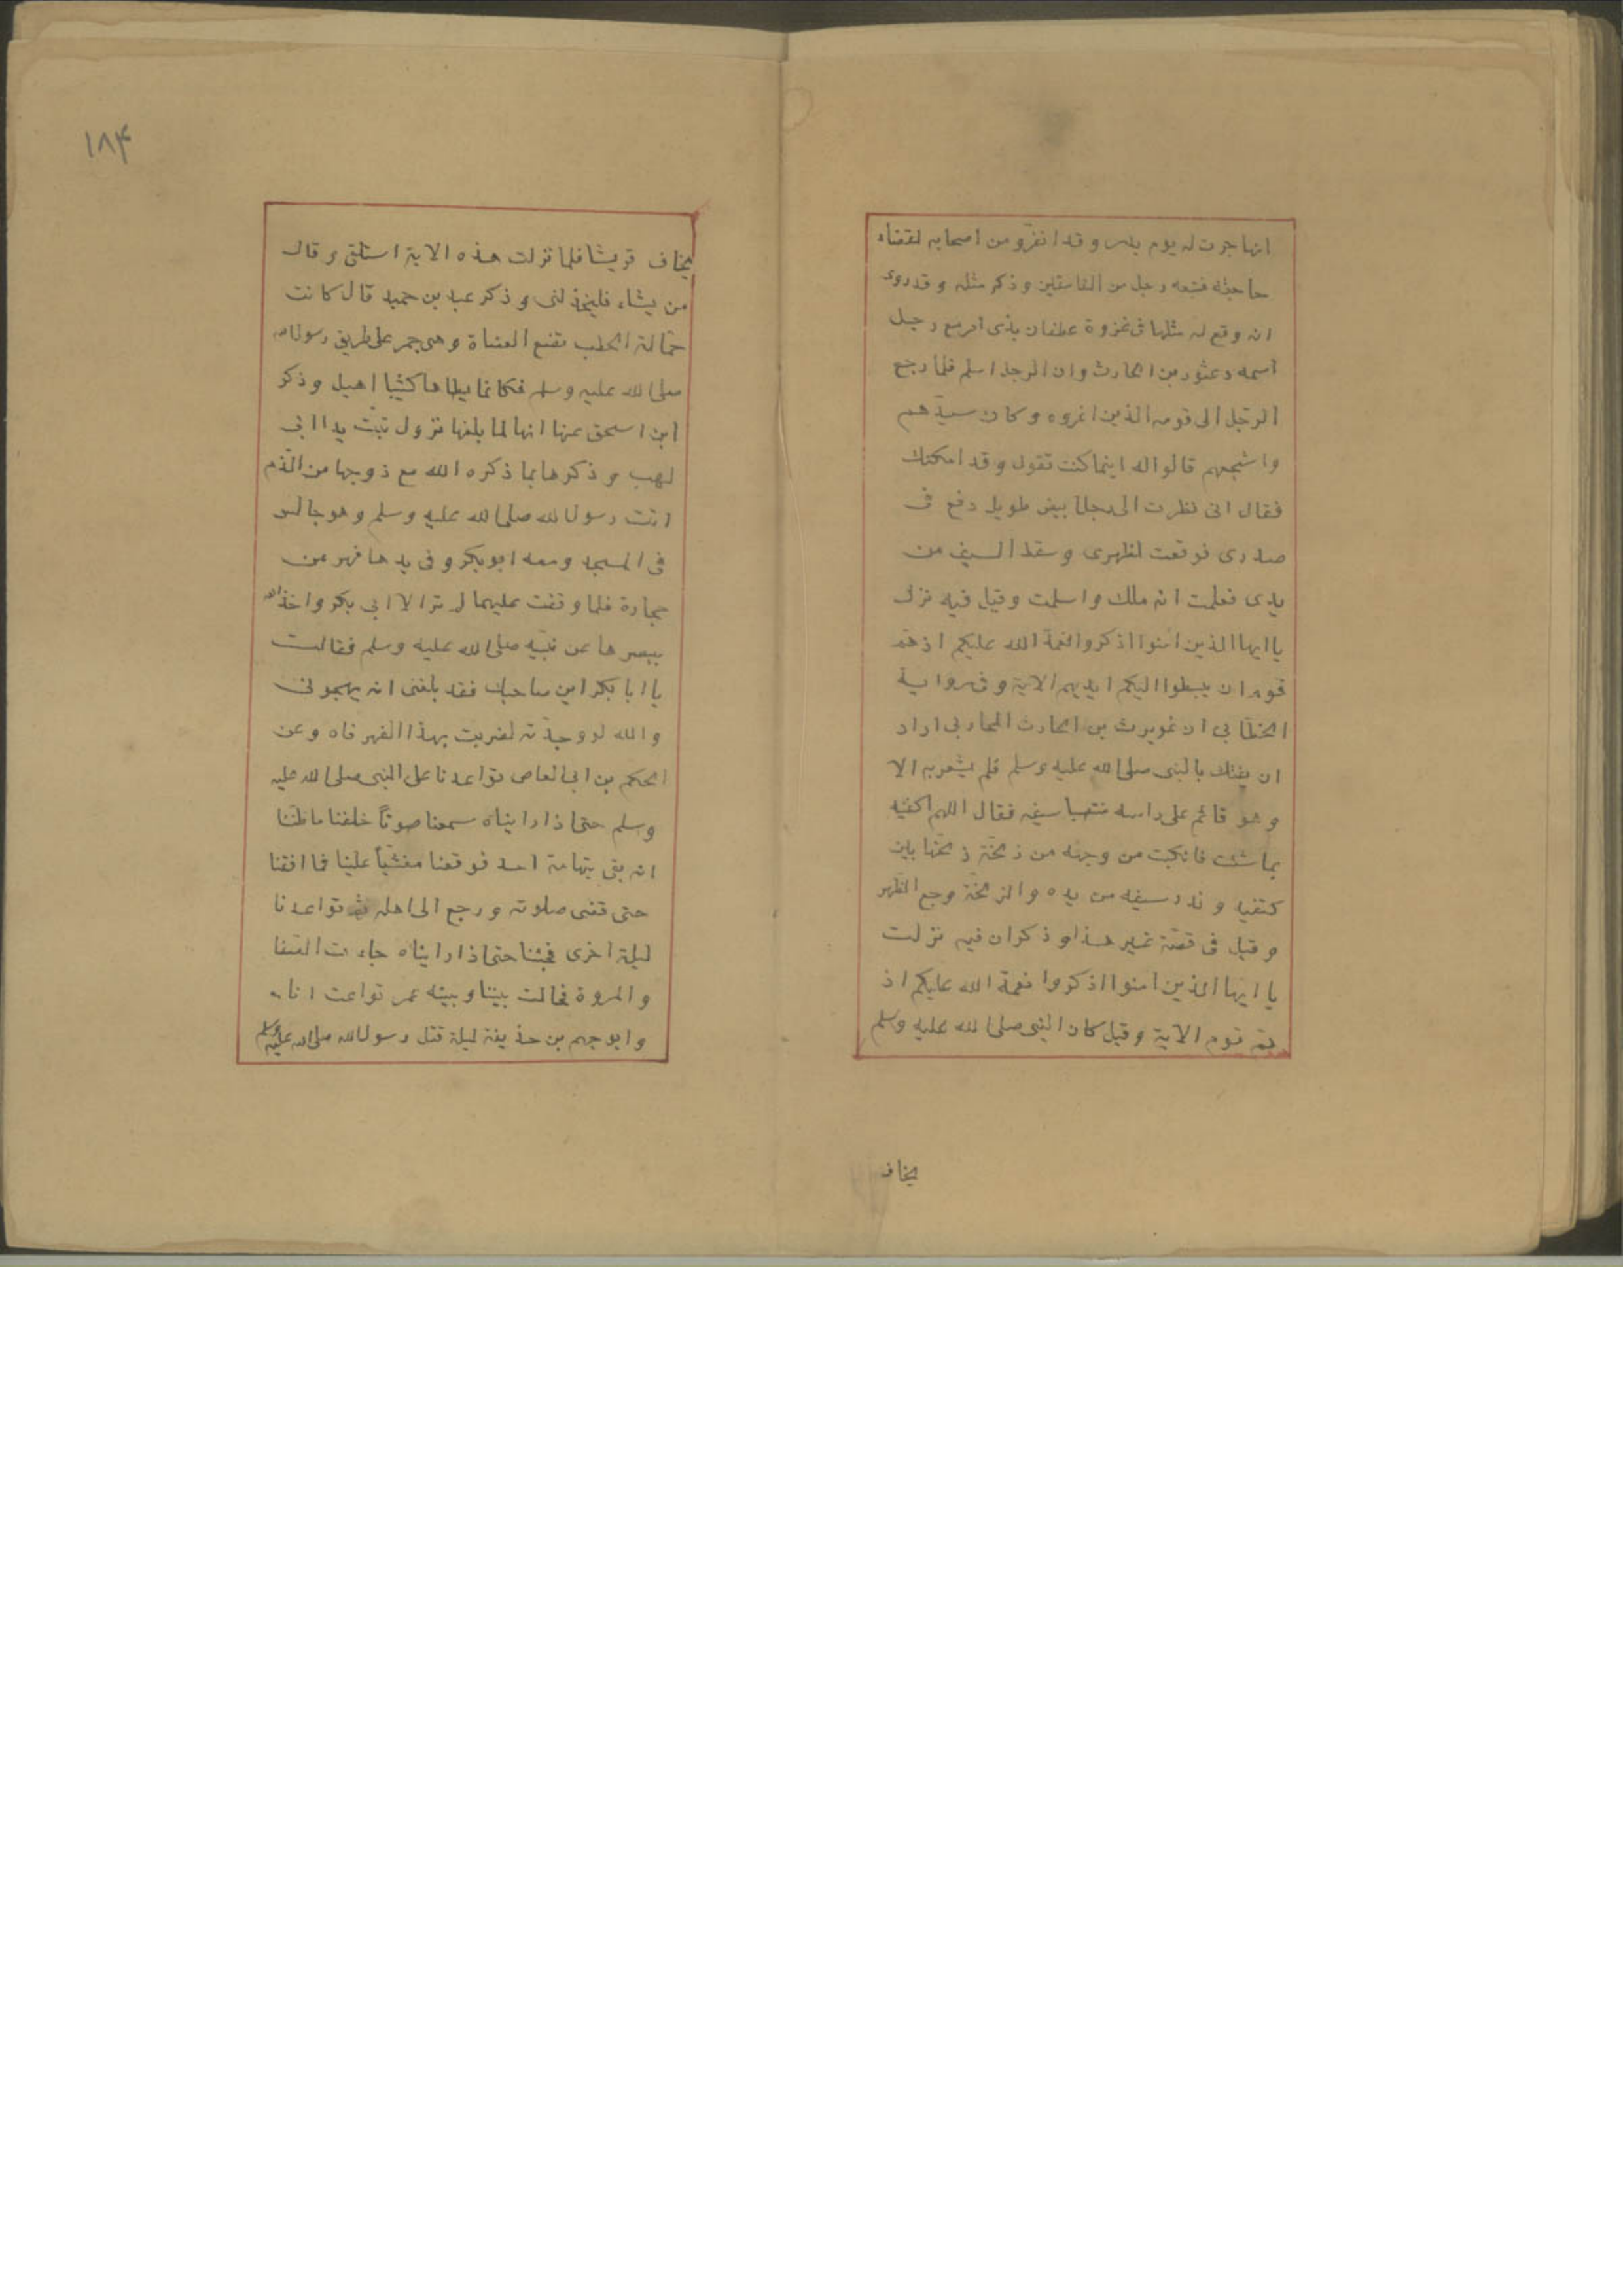 انها جرت له يوم بدر وقد انفرد من اصحابه لقضاء
حاجته فتبعه رجل من المنافقين وذكر مثله وقد روى
انه وقع له مثلها فى غزوة غطفان بذى امر مع رجل
اسمه دعثور بن الحارث وان الرجل اسلم فلما رجع
الرجل الى قومه الذين اغروه وكان سيدهم
واشجعهم قالوا له اينما كنت تقول وقد امكنك
فقال انى نظرت الى رجل ابيض طويل دفع فى
صدرى فوقعت لظهرى وسقط السيف من
يدى فعلمت انه ملك واسلمت وقيل فيه نزلت
يا ايها الذين امنوا اذكروا نعمة الله عليكم اذ هم
قوم ان يبسطوا اليكم ايديهم الاية وفى رواية
الخطابي ان غويرث بن الحارث المحاربي اراد
ان يفتك بالنبى صلى الله عليه وسلم فلم يشعر به الا
وهو قائم على راسه منتضيا سيفه فقال اللهم اكفنيه
بما شئت فانكبت من وجهه من زلخة زلخها بين
كتفيه وندر سيفه من يده والزلخة وجع الظهر
وقيل فى قصته غير هذا وذكر ان فيه نزلت
يا ايها الذين امنوا اذكروا نعمة الله عليكم اذ
هم قوم الآية وقيل كان النبى صلى الله عليه وسلم
يخاف
١٨٤
يخاف قريشا فلما نزلت هذه الاية استلقى وقال
من يشاء فليخذلنى وذكر عبد بن حميد قال كانت
حمّالة الحطب تضع العضاة وهى جمر على طريق رسول الله
صلى الله عليه وسلم فكانما يطاها كثيبا اهيل وذكر
ابن اسحق عنها انها لما بلغها نزول تبّت يدا ابى
لهب وذكرها بما ذكره الله مع زوجها من الذّم
اتت رسول الله صلى الله عليه وسلم وهو جالس
فى المسجد ومعه ابو بكر وفى يدها فهر من
حجارة فلما وقفت عليهما لم تر الا ابي بكر واخذ الله
ببصرها عن نبيّه صلى الله عليه وسلم فقالت
يا ابا بكر اين صاحبك فقد بلغنى انه يهجونى
والله لو وجدته لضربت بهذا الفهر فاه وعن
الحكم بن ابى العاص تواعدنا على النبى صلى الله عليه
وسلم حتى اذا راينّاه سمعنا صوتاً خلفنا ما ظننّا
انه بقى بتهامة احد فوقعنا مغشيّاً علينا فما افقنا
حتى قضى صلوته ورجع الى اهله ثم تواعدنا
ليلة اخرى فجئنا حتى اذا راينّاه جاءت الصّفا
والمروة فحالت بيننا وبينه عمر تواعت انا
وابو جهم بن حذيفة ليلة قتل رسول الله صلى الله عليه وسلم